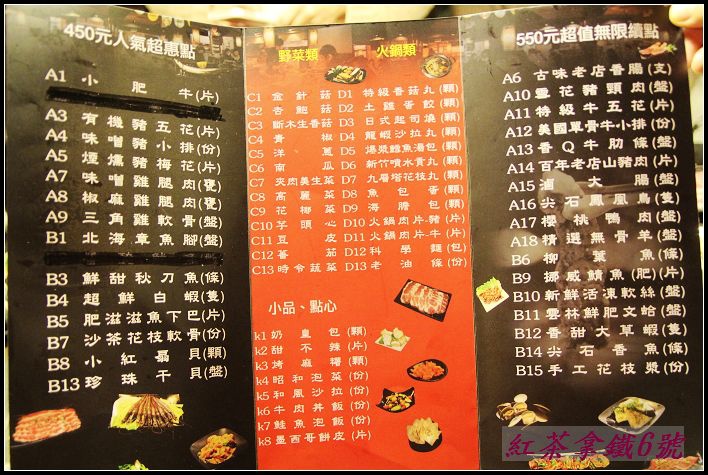 450元人氣超惠點
A1 小肥牛(片)
A3 有機豬五花(片)
A4 味噌豬小排(份)
A5 煙燻豬梅花(片)
A7 味噌雞腿肉(甕)
A8 椒麻雞腿肉(甕)
A9 三角雞軟骨(盤)
B1 北海章魚腳(盤)
B3 鮮甜秋刀魚(條)
B4 超鮮白蝦(隻)
B5 肥滋滋魚下巴(片)
B7 沙茶花枝軟骨(份)
B8 小紅蟳貝(顆)
B13 珍珠干貝(盤)
野菜類
C1 金針菇
C2 杏鮑菇
C3 斷木生香菇
C4 青椒
C5 洋蔥
C6 南瓜
C7 夾肉美生菜
C8 高麗菜
C9 花椰菜
C10 芋頭心
C11 豆皮
C12 蕃茄
C13 時令蔬菜
火鍋類
D1 特級香菇丸(顆)
D2 土雞蛋餃(顆)
D3 日式起司燒(顆)
D4 龍蝦沙拉丸(顆)
D5 爆漿鱈魚湯包(顆)
D6 新竹噴水貢丸(顆)
D7 九層塔花枝丸(顆)
D8 魚包蛋(顆)
D9 海膽包(顆)
D10 火鍋肉片-豬(片)
D11 火鍋肉片-牛(片)
D12 科學麵(包)
D13 老油條(份)
小品、點心
k1 奶皇包(顆)
k2 甜不辣(片)
k3 烤麻糬(顆)
k4 昭和泡菜(份)
k5 和風沙拉(份)
k6 牛肉丼飯(份)
k7 鮭魚泡飯(份)
k8 墨西哥餅皮(片)
550元超值無限續點
A6 古味老店香腸(支)
A10 雪花豬頸肉(盤)
A11 特級牛五花(片)
A12 美國單骨牛小排(份)
A13 香Q牛肋條(盤)
A14 百年老店山豬肉(片)
A15 滷大腸(盤)
A16 尖石鳳凰鳥(隻)
A17 櫻桃鴨肉(盤)
A18 精選無骨羊(盤)
B6 柳葉魚(條)
B9 挪威鯖魚(肥)(片)
B10 新鮮活凍軟絲(盤)
B11 雲林鮮肥文蛤(盤)
B12 香甜大草蝦(隻)
B14 尖石香魚(條)
B15 手工花枝漿(份)
紅茶拿鐵6號